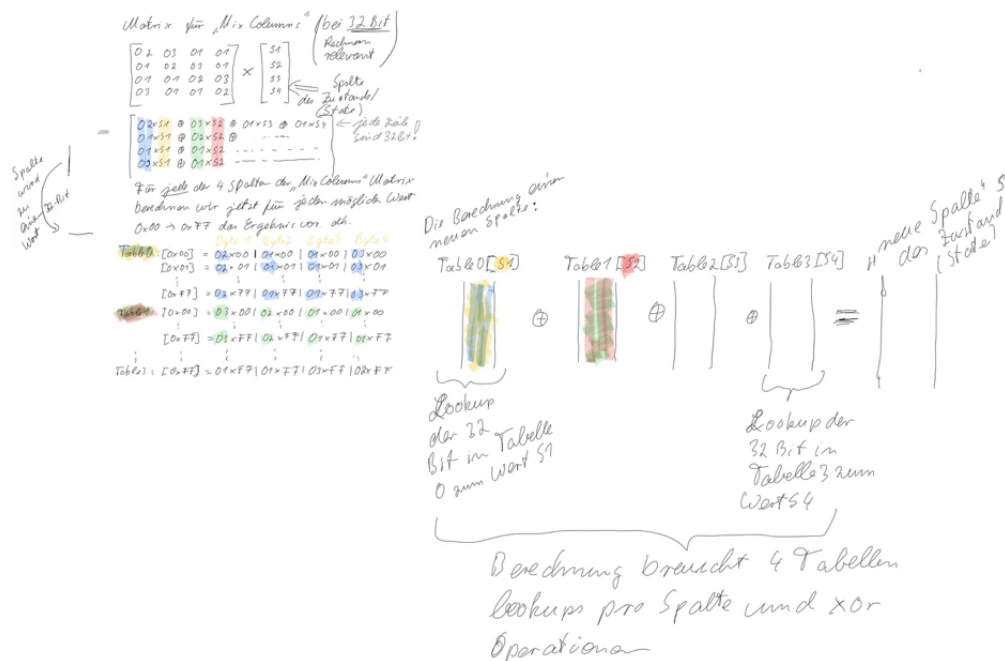 Matrix für „Mix Columns" (bei 32 Bit
Rechnern
relevant)
02 03 01 01
01 02 03 01
01 01 02 03
03 01 01 02
×
S1
S2
S3
S4
Spalte
des Zustands/
(State)
= 02×S1 ⊕ 03×S2 ⊕ 01×S3 ⊕ 01×S4
01×S1 ⊕ 02×S2 ⊕
01×S1 ⊕ 01×S2
03×S1 ⊕ 01×S2
jede Zeile
sind 32Bit!
Spalte
wird
zu
32-Bit
Wort
Für jede der 4 Spalten der „Mix Columns" Matrix
berechnen wir jetzt für jeden möglichen Wert
0x00 → 0xFF das Ergebnis vor. dh.
Byte 1 Byte2 Byte3 Byte 4
Table0: [0x00] = 02×00 | 01×00 | 01×00 | 03×00
[0x01] = 02×01 | 01×01 | 01×01 | 03×01
[0xFF] = 02×FF | 01×FF | 01×FF | 03×FF
Table1: [0x00] = 03×00 | 02×00 | 01×00 | 01×00
[0xFF] = 03×FF | 02×FF | 01×FF | 01×FF
Table3: [0xFF] = 01×FF | 01×FF | 03×FF | 02×FF
Die Berechnung einer
neuen Spalte:
Table0[S1] Table1[S2] Table2[S3] Table3[S4]
⊕ ⊕ ⊕ =
„neue Spalte" S
das Zustand
(State)
Lookup
der 32
Bit in Tabelle
0 zum Wert S1
Lookup der
32 Bit in
Tabelle 3 zum
Wert S4
Berechnung braucht 4 Tabellen
lookups pro Spalte und xor
Operationen